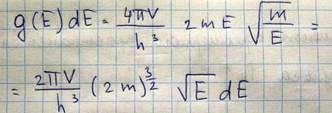 g(E)dE = 4πV/h³ 2mE √(m/E) =
= 2πV/h³ (2m)^(3/2) √E dE